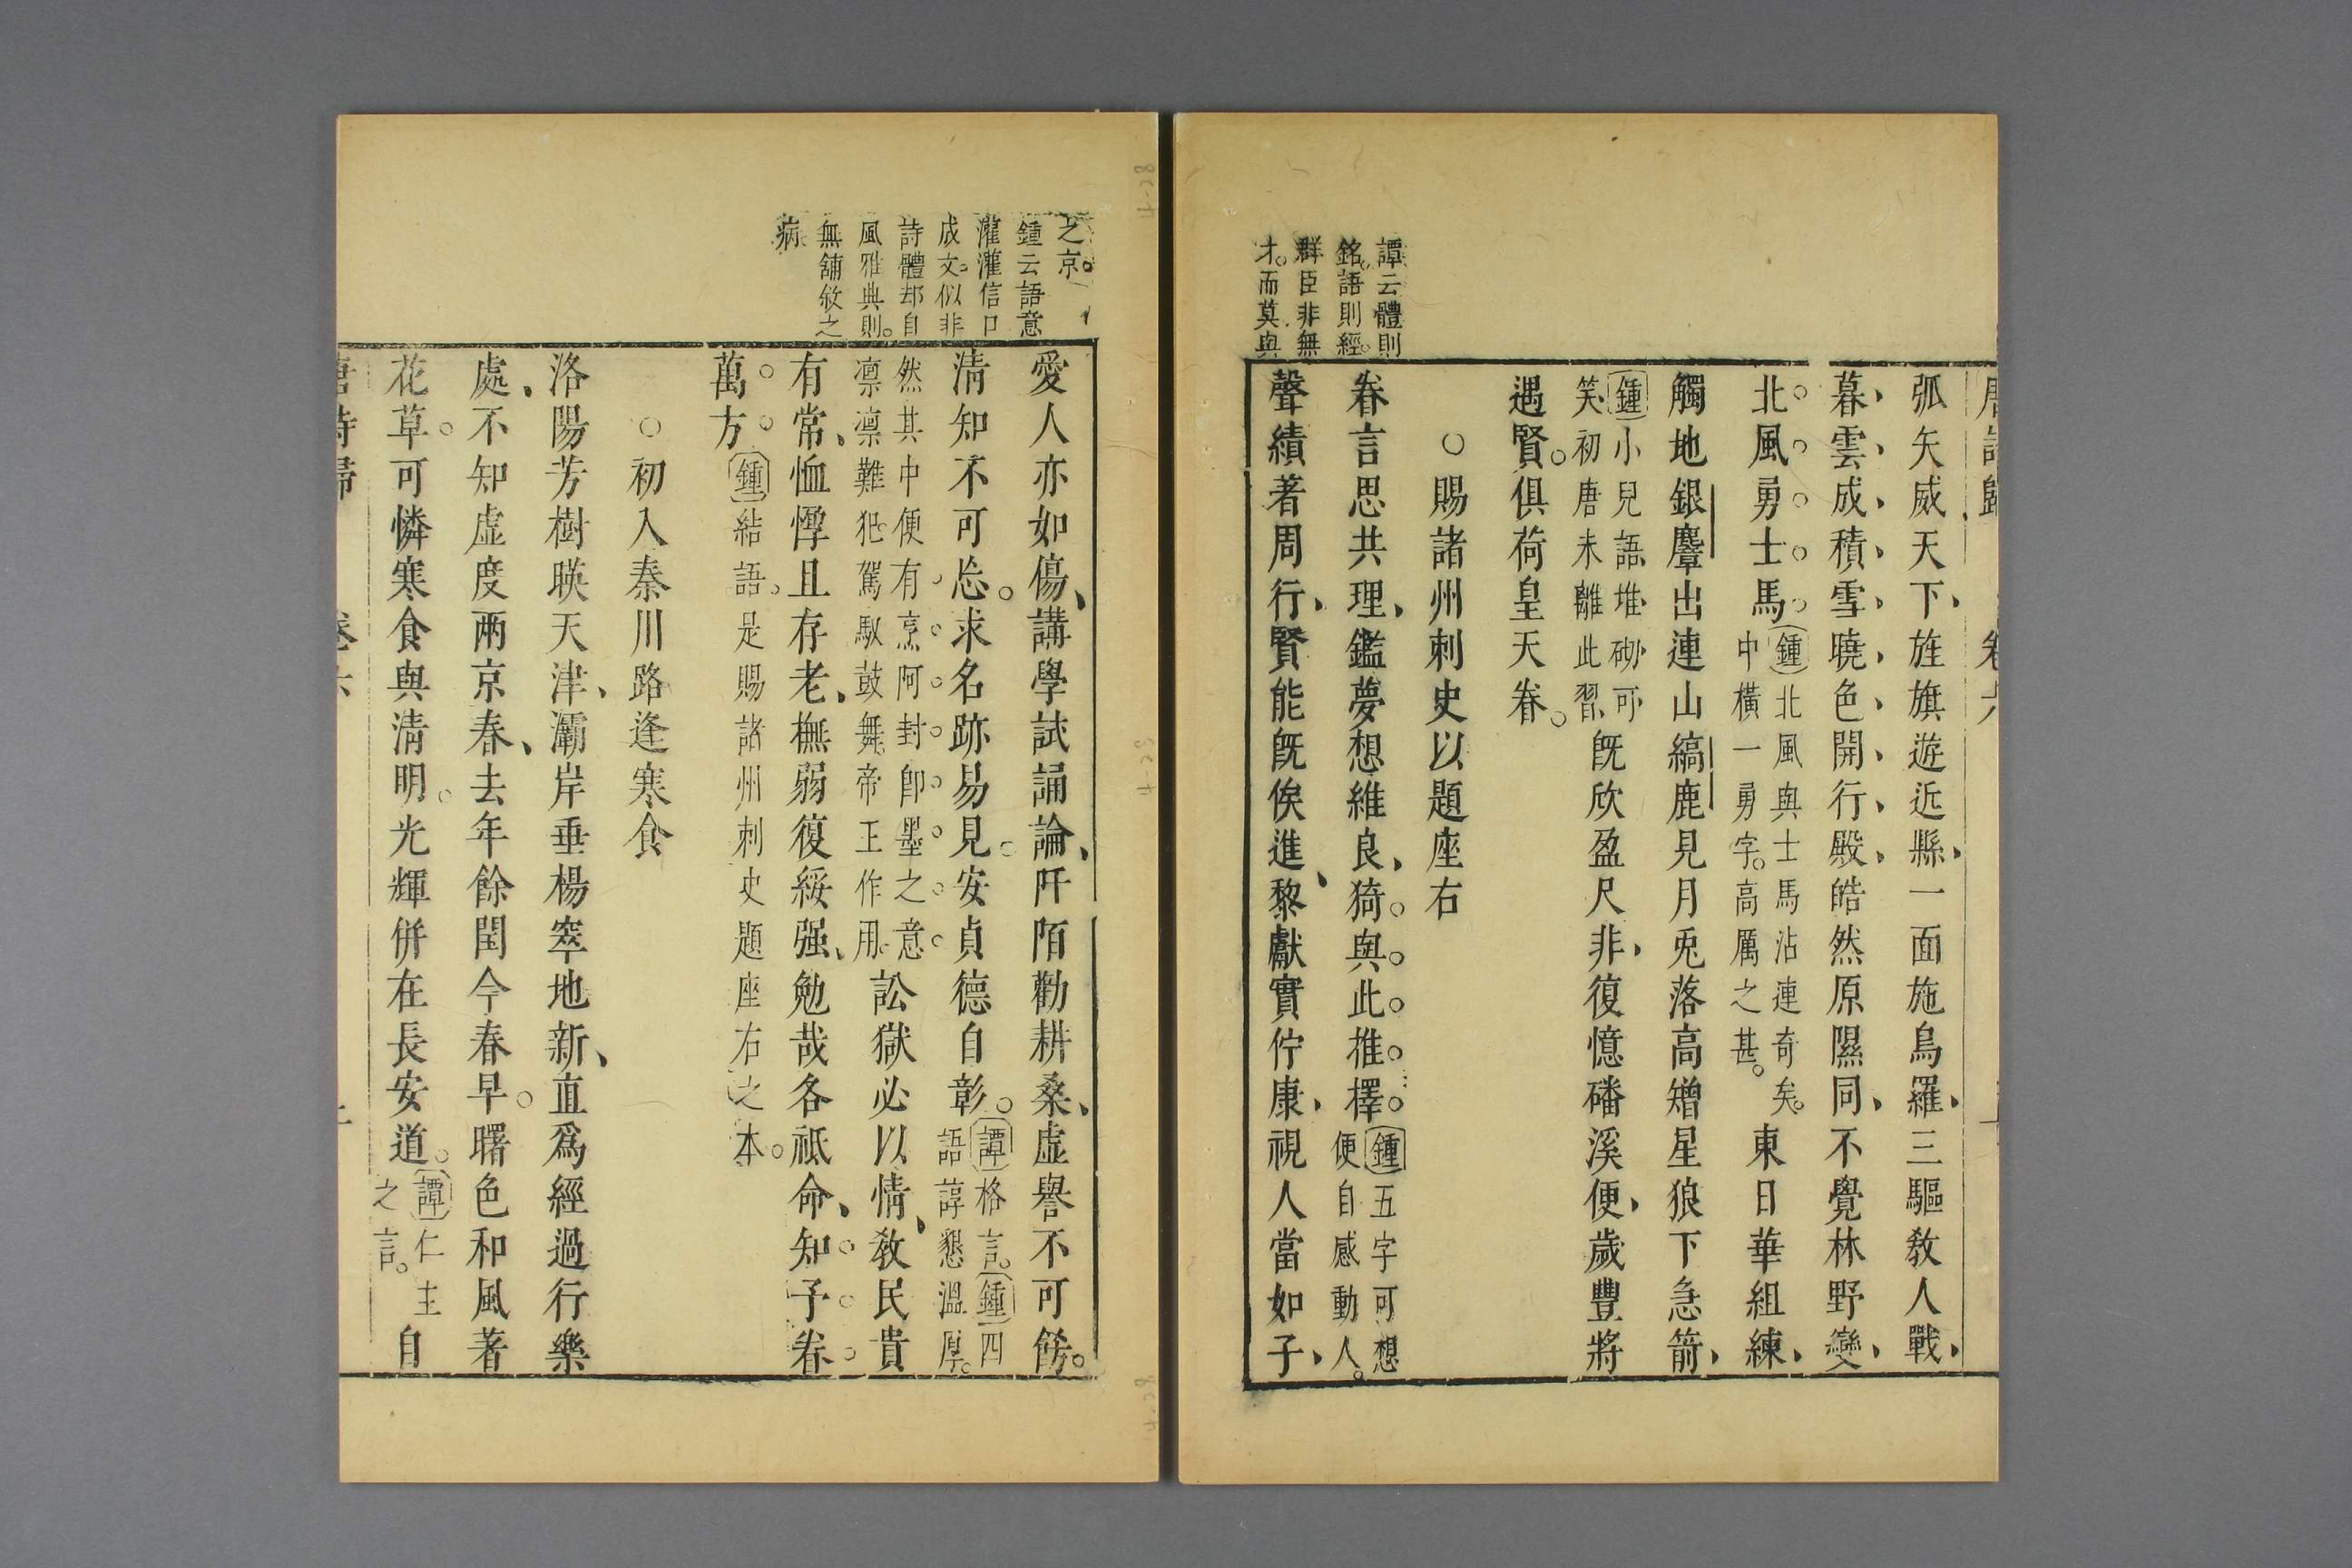 唐詩歸 卷六
弧矢威天下旌旗遊近縣一面施鳥羅三驅教人戰
暮雲成積雪曉色開行殿皓然原隰同不覺林野變
北風勇士馬
鍾北風與士馬沾連奇矣
中橫一勇字高厲之甚
東日華組練
觸地銀麞出連山縞鹿見月兎落高矰星狼下急箭
鍾小兒語堆砌可
笑初唐未離此習
旣欣盈尺非復憶磻溪便歲豐將
遇賢俱荷皇天眷
○賜諸州刺史以題座右
眷言思共理鑑夢想維良猗與此推擇
鍾五字可想
便自感動人
聲績著周行賢能旣俟進黎獻實佇康視人當如子
譚云體則
銘語則經
群臣非無
才而莫與
之京
鍾云語意
灌灌信口
成文似非
詩體却自
風雅典則
無鋪敘之
病
愛人亦如傷講學試誦論阡陌勸耕桑虛譽不可飭
清知不可忘求名跡易見安貞德自彰
譚格言鍾四
語諄懇溫厚
然其中便有烹阿封卽墨之意
凛凛難犯駕馭鼓舞帝王作用
訟獄必以情教民貴
有常恤惸且存老撫弱復綏强勉哉各祗命知予眷
萬方
鍾結語是賜諸州刺史題座右之本
○初入秦川路逢寒食
洛陽芳樹暎天津灞岸垂楊窣地新直爲經過行樂
處不知虛度兩京春去年餘閏今春早曙色和風著
花草可憐寒食與清明光輝併在長安道
譚仁主
之言
自
唐詩歸 卷六